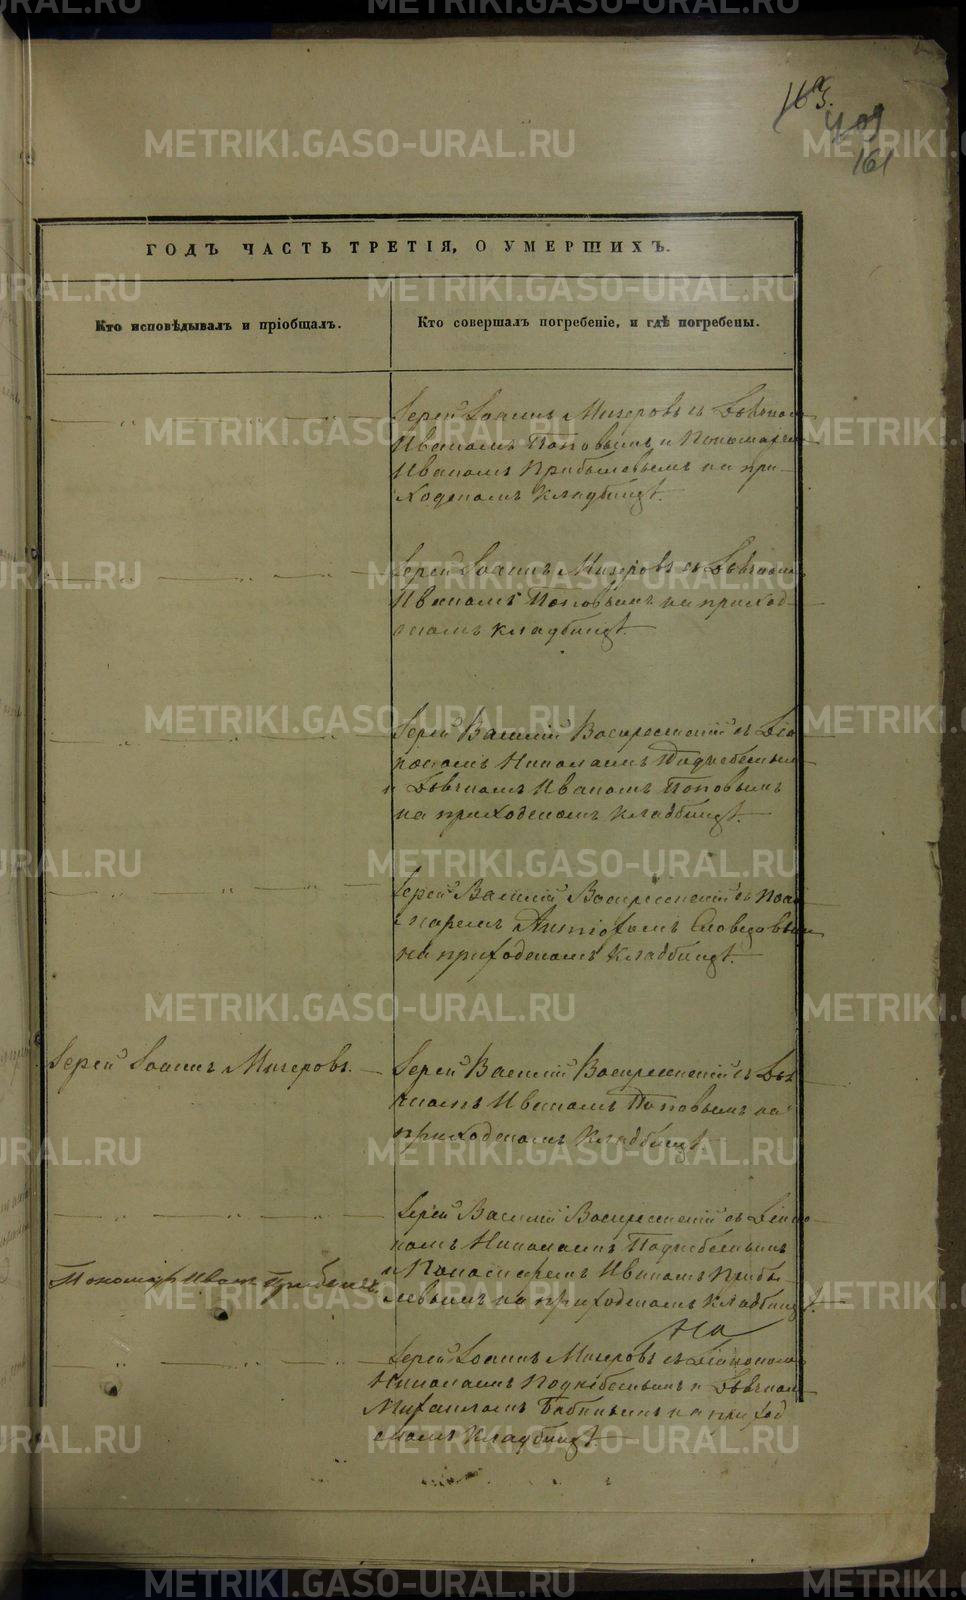 163.
409
161
ГОДЪ ЧАСТЬ ТРЕТІЯ, О УМЕРШИХЪ.
Кто исповѣдывалъ и пріобщалъ.
Кто совершалъ погребеніе, и гдѣ погребены.
Іерей Іоаннъ Мизеровъ съ Дьячком
Иваномъ Поповымъ и Пономарем
Иваномъ Прибылевымъ на при-
ходскомъ кладбищѣ.
Іерей Іоаннъ Мизеровъ съ Дьячком
Иваномъ Поповымъ на приход-
скомъ кладбищѣ.
Іерей Василій Воскресенскій съ Діа
кономъ Николаемъ Поднебесным
и Дьячкомъ Иваномъ Поповымъ
на приходскомъ кладбищѣ.
Іерей Василій Воскресенскій съ Поно
маремъ
на приходскомъ кладбищѣ.
Іерей Іоаннъ Мизеровъ.
Іерей Василій Воскресенскій съ Дья
чкомъ Иваномъ Поповымъ на
приходскомъ кладбищѣ
Іерей Василій Воскресенскій съ Діако
номъ Николаемъ Поднебеснымъ
и Пономаремъ Иваномъ Прибы-
левымъ на приходскомъ кладбищѣ.
Пономарь Иванъ
На
Іерей Іоаннъ Мизеровъ съ Діакономъ
Николаемъ Поднебеснымъ и Дьячком
Михаиломъ Бабинымъ на приход
скомъ кладбищѣ.
METRIKI.GASO-URAL.RU